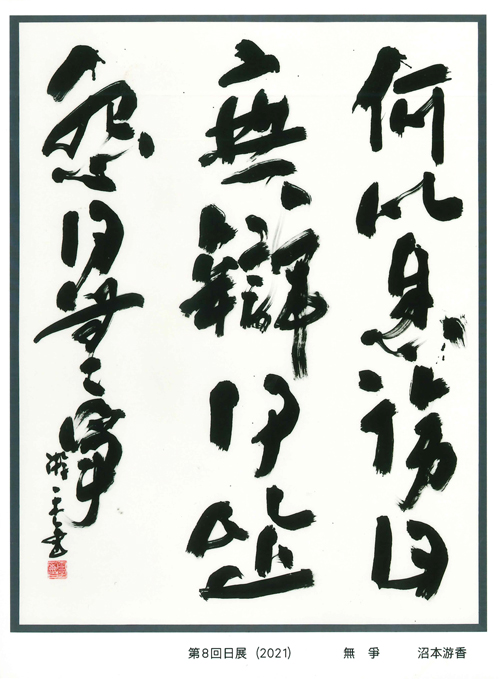 何以息謗曰
無辯何以止
怨曰無爭
游香書
第8回日展 (2021) 無 爭 沼本游香